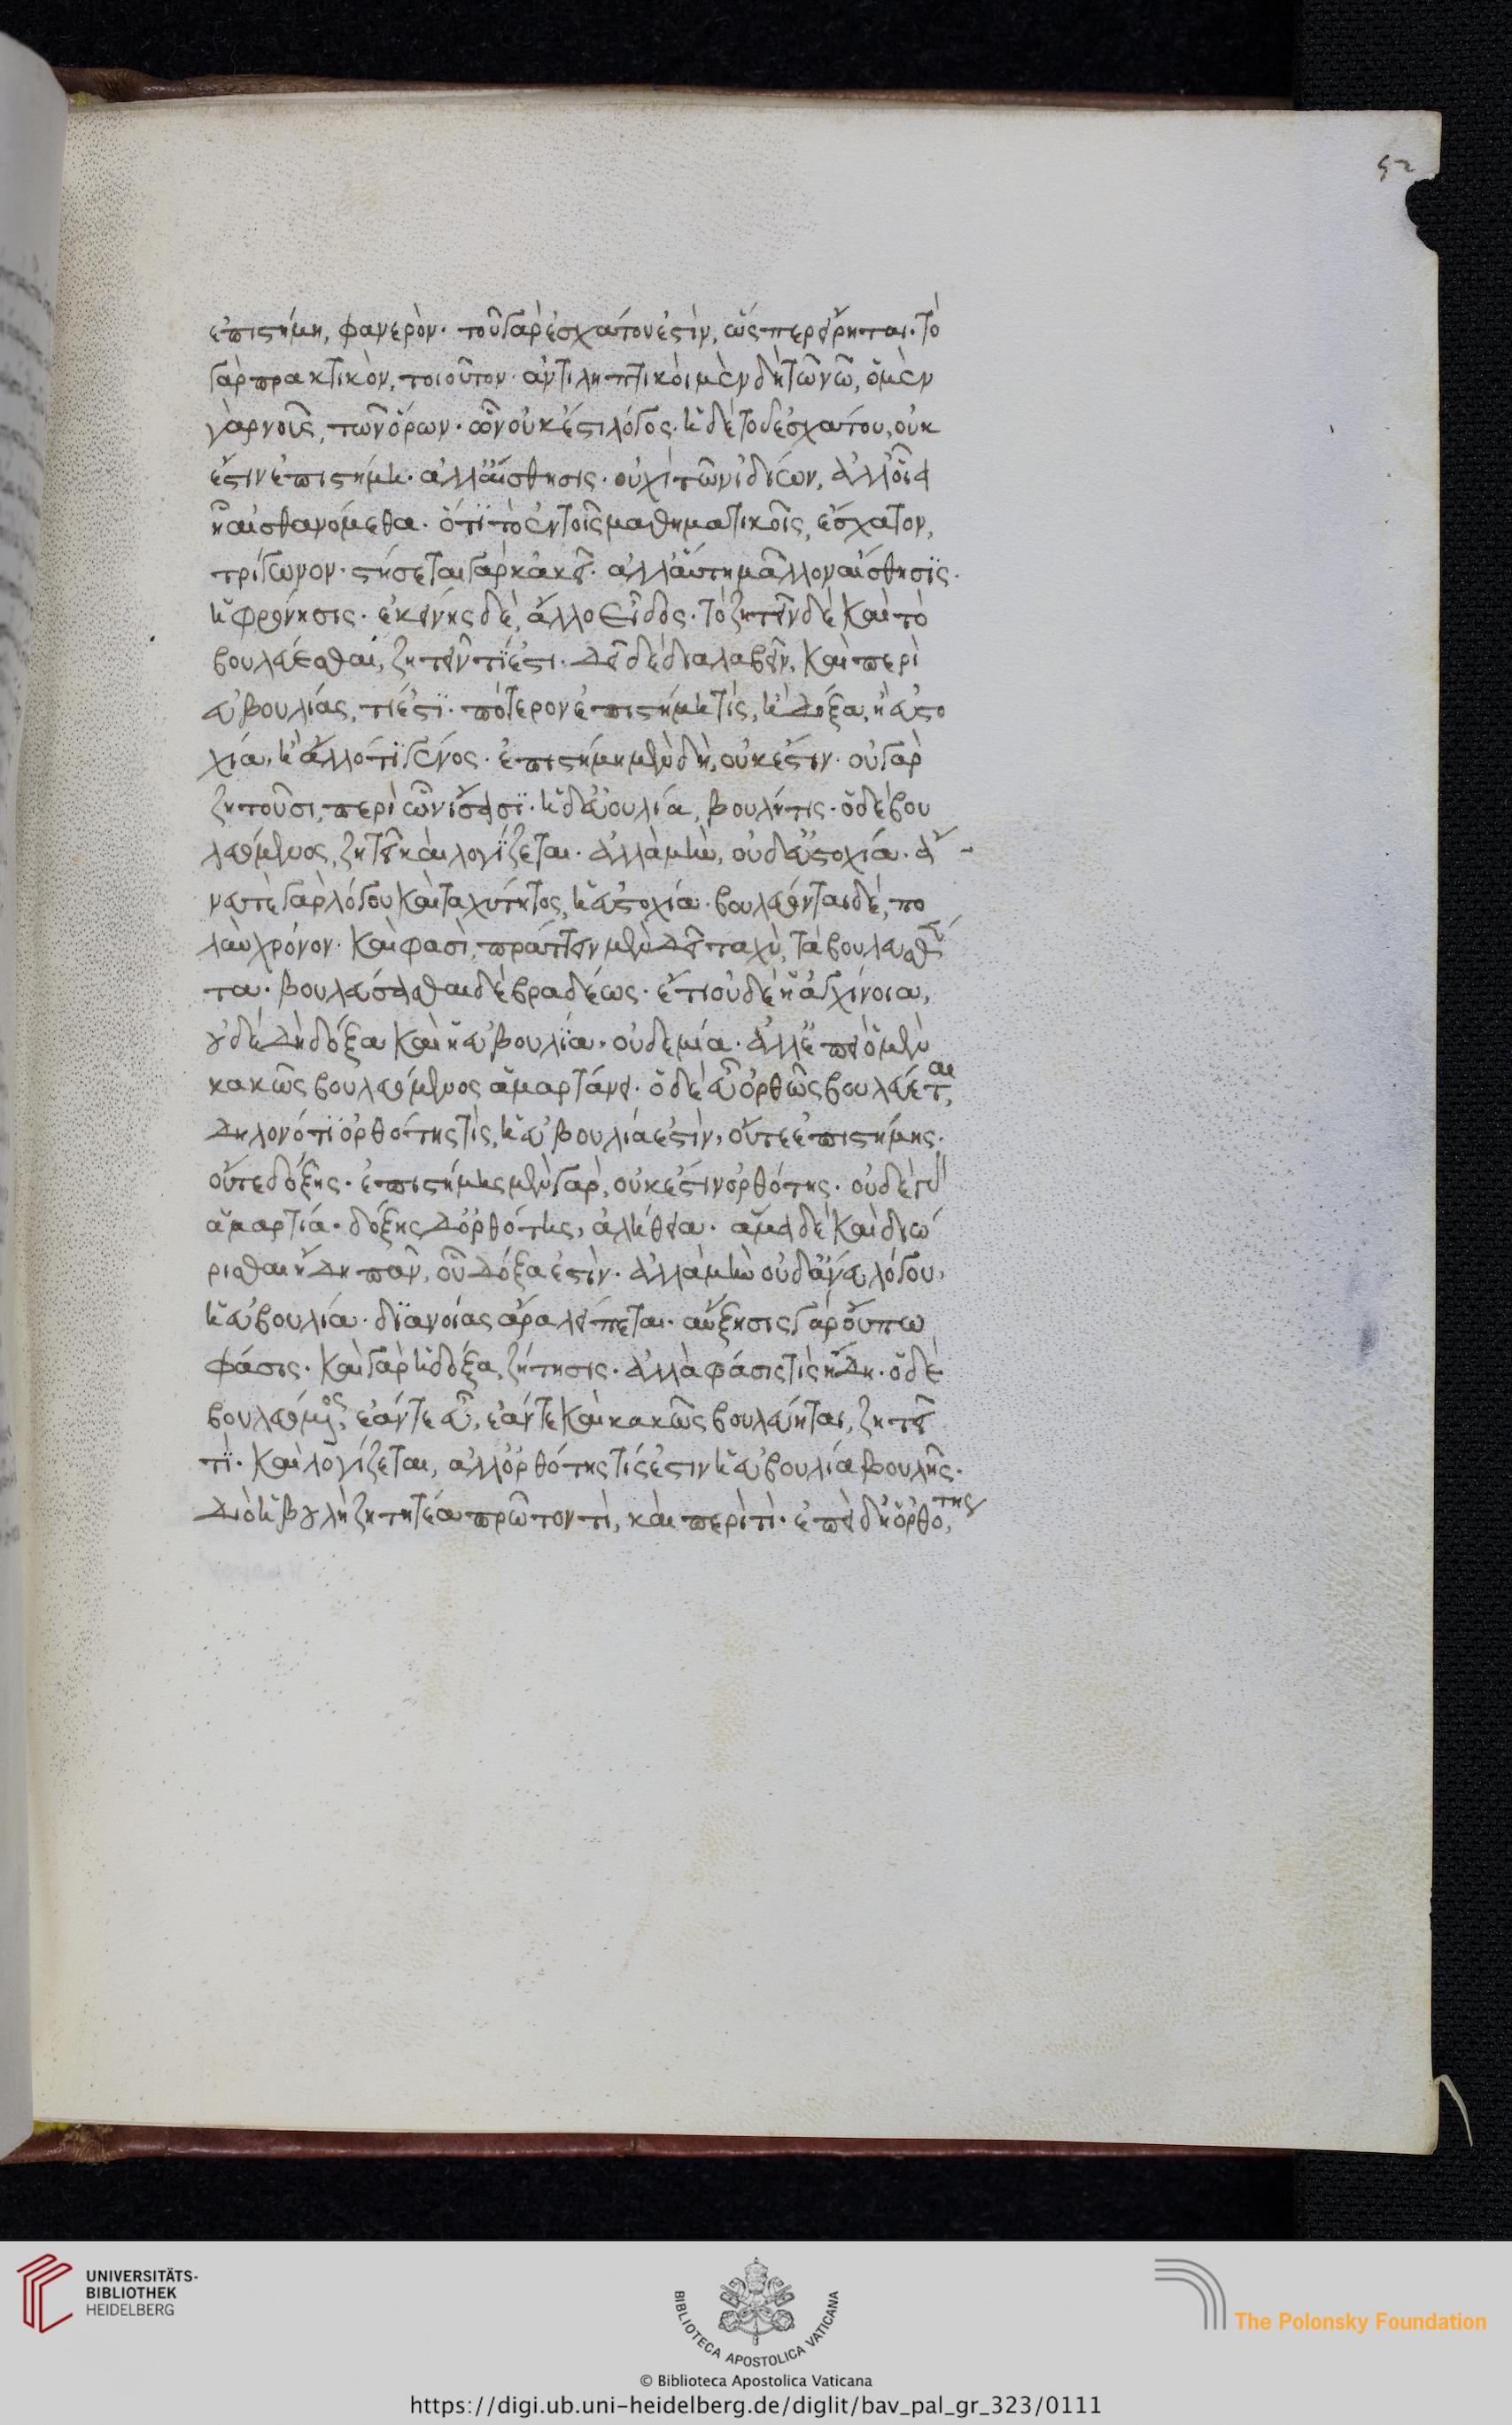 52
ἐπιστήμη, φανερὸν· τοῦ γὰρ ἐσχάτου ἐστὶν, ὥσπερ εἴρηται· τὸ
γὰρ πρακτικὸν, τοιοῦτον· ἀντιληπτικόι μὲν δὴ τῶν νῶ, ὁ μὲν
γὰρ νοῦς, τῶν ὅρων· ὧν οὐκ ἔστι λόγος· ἡ δὲ τοῦ ἐσχάτου, οὐκ
ἔστιν ἐπιστήμη· ἀλλ' αἴσθησις· οὐχὶ τῶν ἰδίων, ἀλλ' οἵα
ἧ αἰσθανόμεθα· ὅτι τὸ ἐν τοῖς μαθηματικοῖς, ἔσχατον,
τρίγωνον· στήσεται γὰρ κἀκεῖ· ἀλλ' αὕτη μᾶλλον αἴσθησις·
ἢ φρόνησις· ἐκείνης δὲ, ἄλλο εἶδος· τὸ ζητεῖν δὲ καὶ τὸ
βουλεύεσθαι, ζητεῖν τί ἐστι· δεῖ δὲ διαλαβεῖν, καὶ περὶ
εὐβουλίας, τί ἐστι· πότερον ἐπιστήμη τίς, ἢ δόξα, ἢ εὐστο
χία, ἢ ἄλλό τι γένος· ἐπιστήμη μὲν δὴ, οὐκ ἔστιν· οὐ γὰρ
ζητοῦσι, περὶ ὧν ἴσασι· ἡ δ' εὐβουλία, βουλή τις· ὁ δὲ βου
λευόμενος, ζητεῖ καὶ λογίζεται· ἀλλὰ μὴν, οὐδ' εὐστοχία· ἄ
νευ τὲ γὰρ λόγου καὶ ταχύτητος, ἡ εὐστοχία· βουλεύονται δὲ, πο
λὺν χρόνον· καὶ φασὶ, πράττειν μὲν δεῖ ταχὺ, τὰ βουλευθέν
τα· βουλεύσασθαι δὲ βραδέως· ἔτι οὐδὲ ἡ ἀγχίνοια,
οὐδὲ δὴ δόξα καὶ ἡ εὐβουλία, οὐδεμία· ἀλλ' ἐπεὶ ὁ μὲν
κακῶς βουλευόμενος ἁμαρτάνει· ὁ δὲ εὖ ὀρθῶς βουλεύεται,
δηλονότι ὀρθότης τίς, ἡ εὐβουλία ἐστὶν, οὔτε ἐπιστήμης·
οὔτε δόξης· ἐπιστήμης μὲν γὰρ, οὐκ ἔστιν ὀρθότης· οὐδὲ γὰρ
ἁμαρτία· δόξης δ' ὀρθότης, ἀλήθεια· ἅμα δὲ καὶ διώ
ρισθαι ἤδη πᾶν, οὗ δόξα ἐστὶν· ἀλλὰ μὴν οὐδ' ἄνευ λόγου,
ἡ εὐβουλία· διανοίας ἄρα λείπεται· αὔξησις γὰρ οὔπω
φάσις· καὶ γὰρ ἡ δόξα, ζήτησις· ἀλλὰ φάσις τὶς ἤδη· ὁ δὲ
βουλευόμενος, ἐάν τε εὖ, ἐάν τε καὶ κακῶς βουλεύηται, ζητεῖ
τι· καὶ λογίζεται, ἀλλ' ὀρθότης τίς ἐστιν ἡ εὐβουλία βουλῆς·
διὸ ἡ βουλὴ ζητητέα πρῶτον τὶ, καὶ περὶ τὶ· ἐπεὶ δ' ἡ ὀρθότης,
UNIVERSITÄTS-
BIBLIOTHEK
HEIDELBERG
BIBLIOTECA APOSTOLICA VATICANA
The Polonsky Foundation
© Biblioteca Apostolica Vaticana
https://digi.ub.uni-heidelberg.de/diglit/bav_pal_gr_323/0111